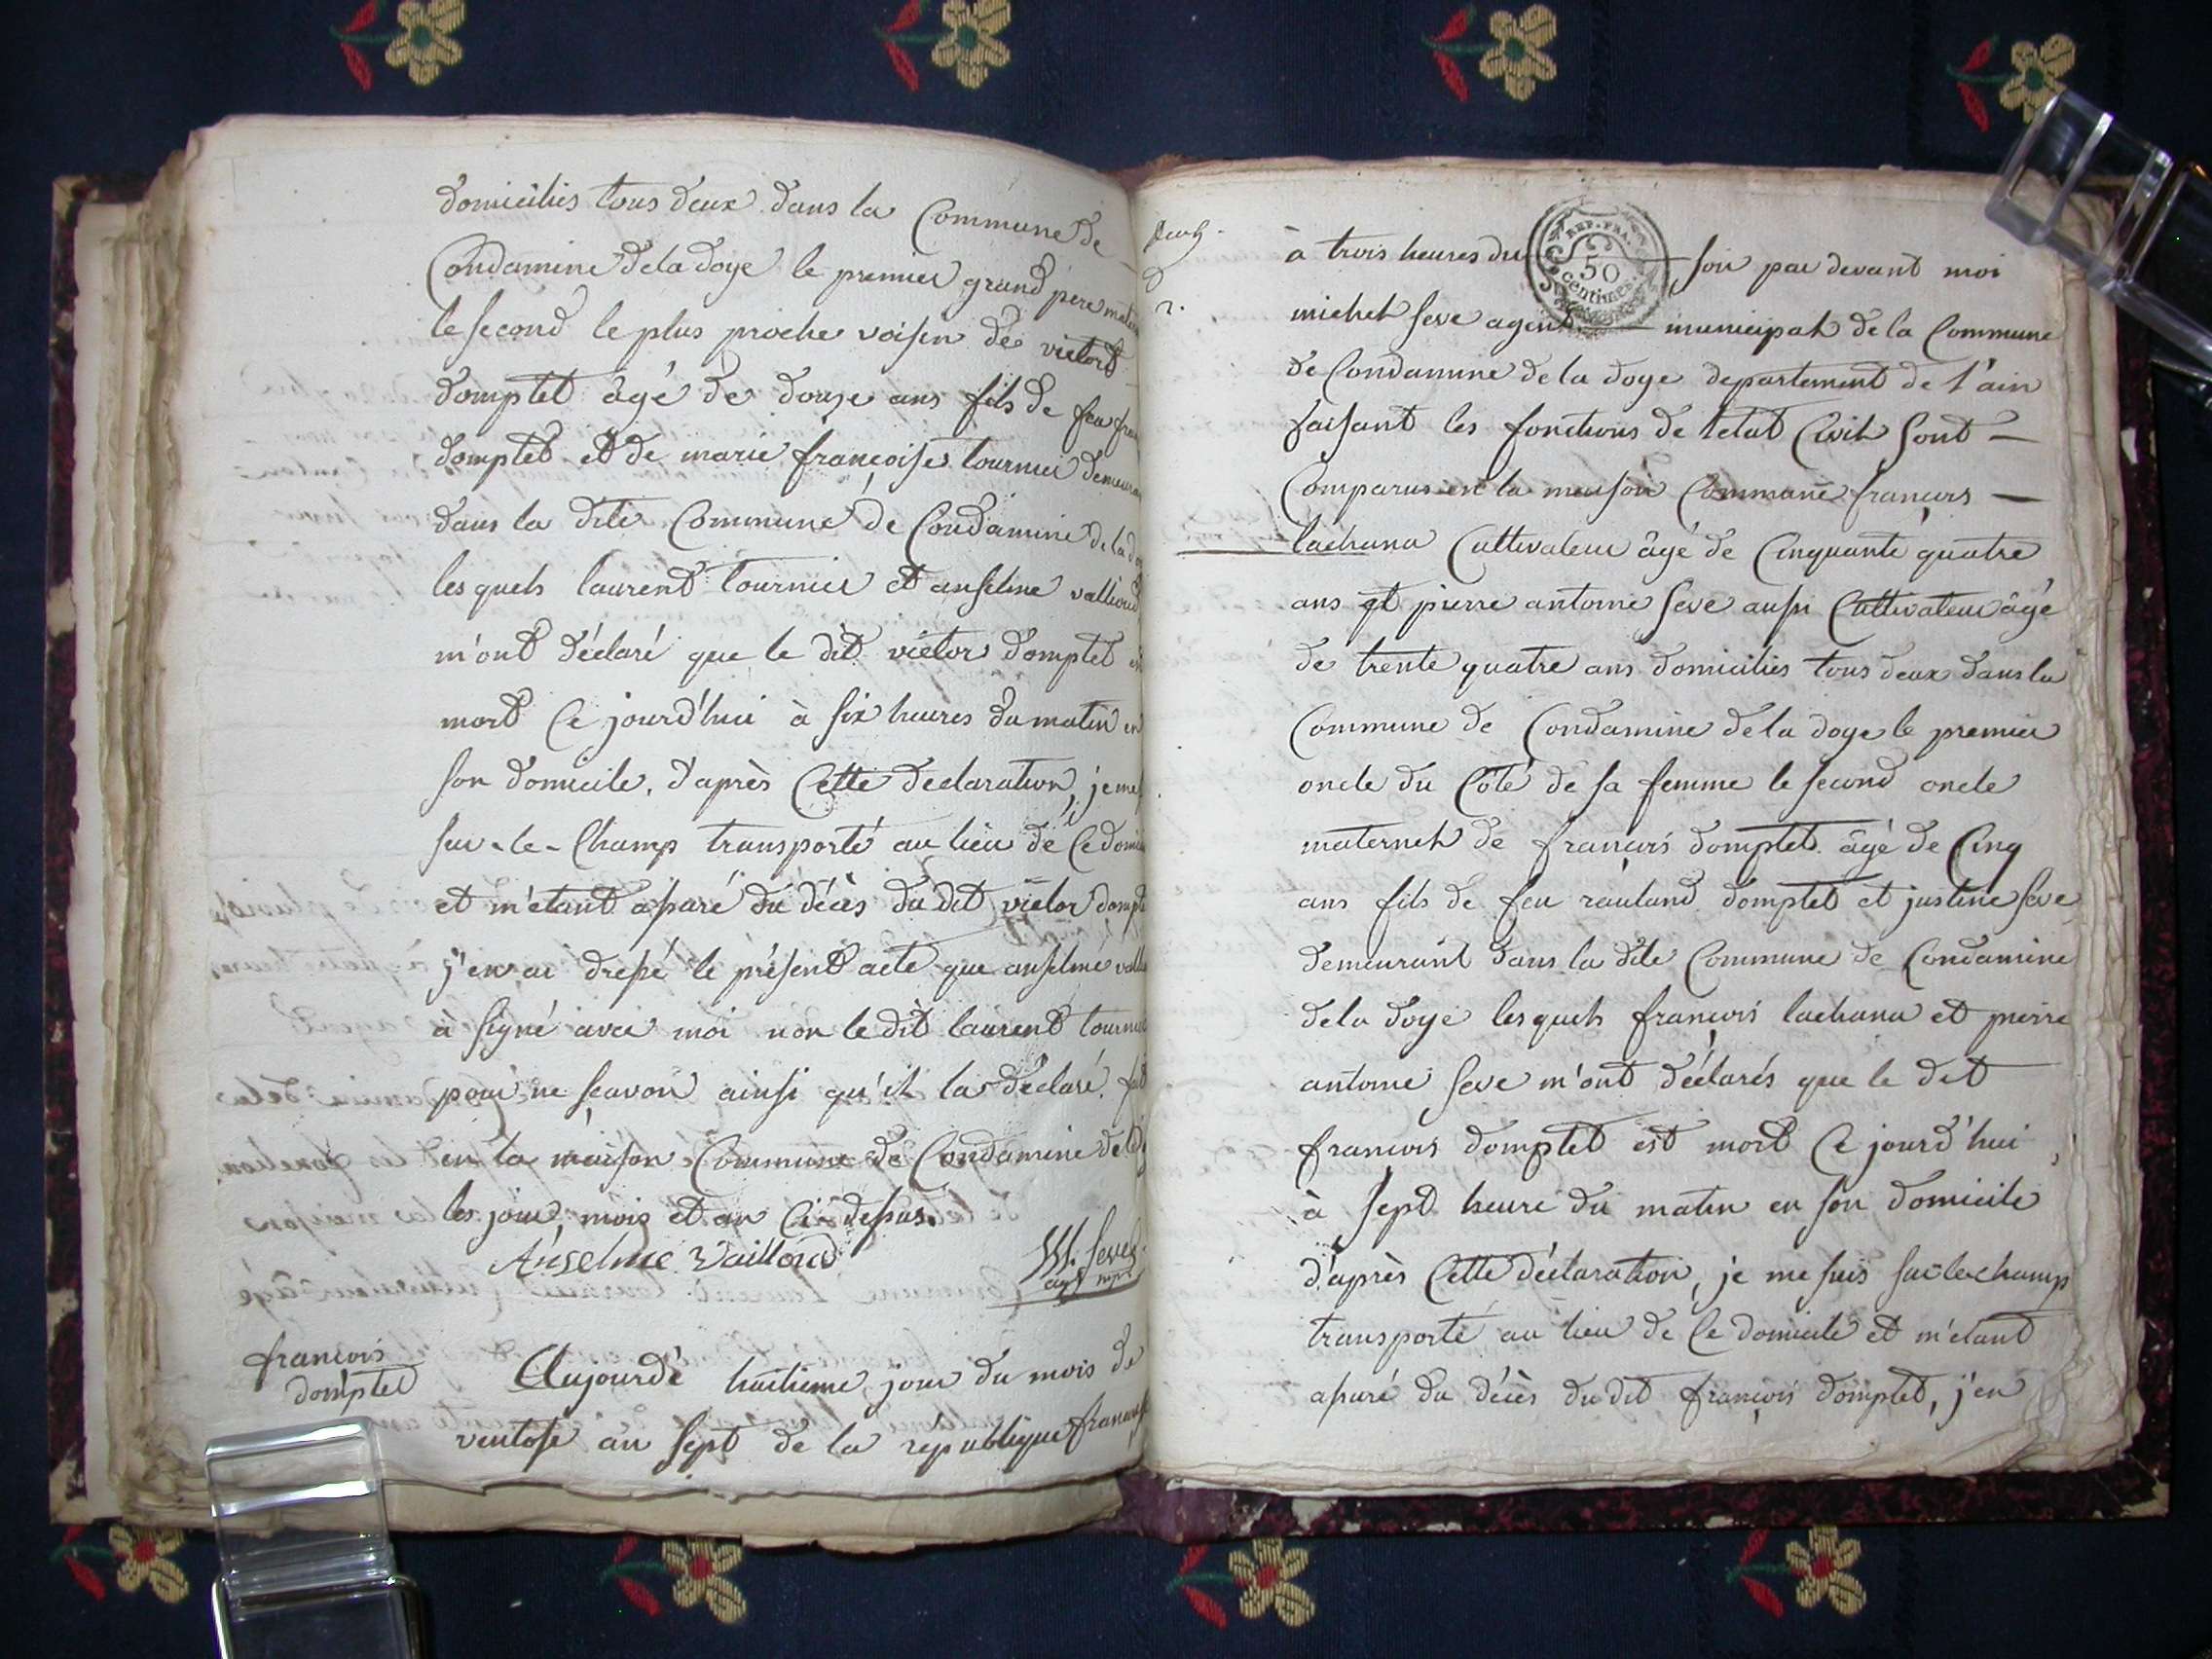 domiciliés tous deux dans la Commune de
Condamine de la doye le premier grand pere mater
le second le plus proche voisin de victord
domptet âgé de douze ans fils de feu fran
domptet et de marie françoise tournier demeura
dans la dite Commune de Condamine de la do
lesquels laurent tournier et anselme valliond
m'ont déclaré que le dit victor domptet est
mort ce jourd'hui à six heures du matin en
son domicile, d'après Cette declaration, je me
sur-le-Champ transporté au lieu de Ce domi
et m'etant assuré du décès du dit victor dompte
j'en ai dressé le présent acte que anselme vall
a signé avec moi non le dit laurent tournie
pour ne scavoir ainsi qu'il la déclaré. fait
en la maison Commune de Condamine de la
les jour, mois et an Ci-dessus.
Anselme Vailloud
M. Seve
agt mpal
francois
domptet
Aujourd'è huitieme jour du mois de
ventose an sept de la republique française
à trois heures du soir par devant moi
REP. FRA.
50
Centimes.
michel seve agent municipal de la Commune
de Condamine de la doye departement de l'ain
faisant les fonctions de letat Civil sont
Comparus en la maison Commune francois
lachana Cultivateur âgé de Cinquante quatre
ans et pierre antoine seve aussi Cultivateur âgé
de trente quatre ans domiciliés tous deux dans la
Commune de Condamine de la doye le premier
oncle du Côté de sa femme le second oncle
maternel de francois domptet âgé de Cinq
ans fils de feu rauland domptet et justine seve
demeurant dans la dite Commune de Condamine
de la doye lesquels françois lachana et pierre
antoine seve m'ont déclarés que le dit
francois domptet est mort Ce jourd'hui
à sept heure du matin en son domicile
d'après Cette déclaration, je me suis sur le champ
transporté au lieu de Ce domicile et m'etant
assuré du décès du dit françois domptet, j'en